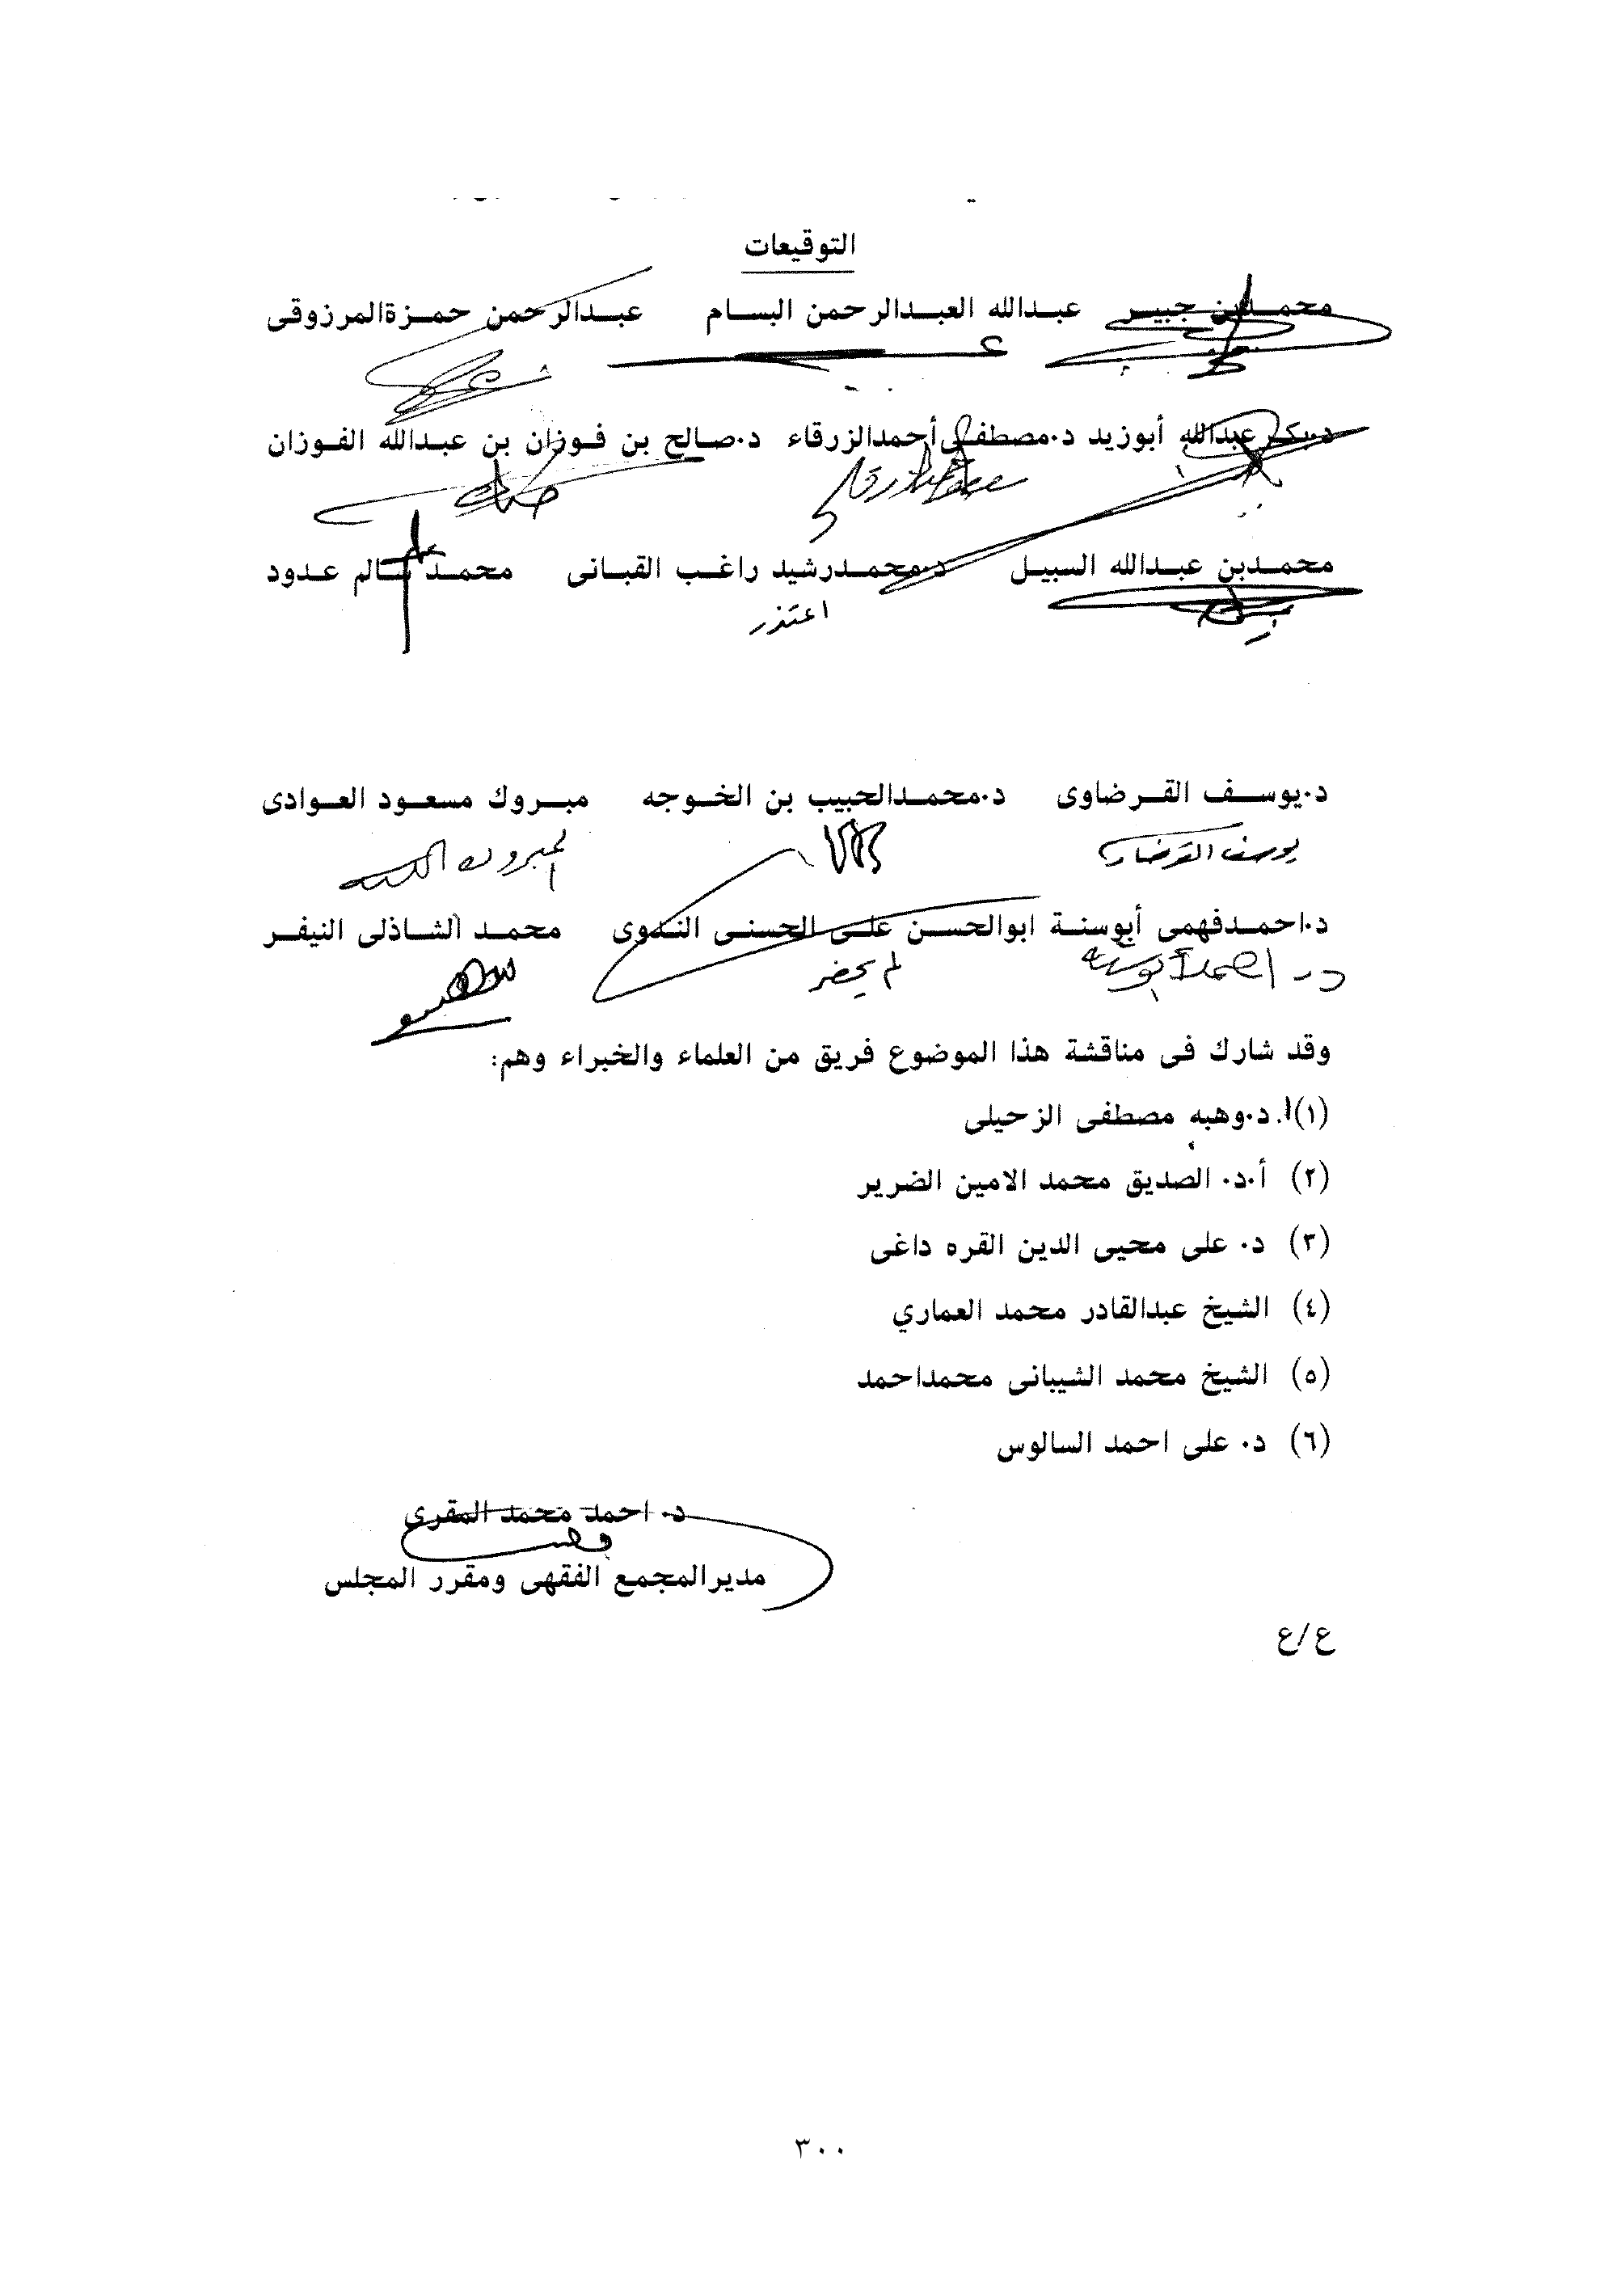 التوقيعات
محمد بن جبير عبدالله العبدالرحمن البسام عبدالرحمن حمزةالمرزوقى
د.بكر عبدالله أبوزيد د.مصطفى أحمدالزرقاء د.صالح بن فوزان بن عبدالله الفوزان
محمدبن عبدالله السبيل د.محمدرشيد راغب القبانى محمد سالم عدود
اعتذر
د.يوسف القرضاوى د.محمدالحبيب بن الخوجه مبروك مسعود العوادى
يوسف القرضاوي
د.احمدفهمى أبوسنة ابوالحسن على الحسنى الندوى محمد الشاذلى النيفر
د. احمد أبوسنة لم يحضر
وقد شارك فى مناقشة هذا الموضوع فريق من العلماء والخبراء وهم:
(١) ا.د.وهبه مصطفى الزحيلى
(٢) أ.د. الصديق محمد الامين الضرير
(٣) د. على محيى الدين القره داغى
(٤) الشيخ عبدالقادر محمد العماري
(٥) الشيخ محمد الشيبانى محمداحمد
(٦) د. على احمد السالوس
د. احمد محمد المقرى
مديرالمجمع الفقهى ومقرر المجلس
ع/ع
٣٠٠